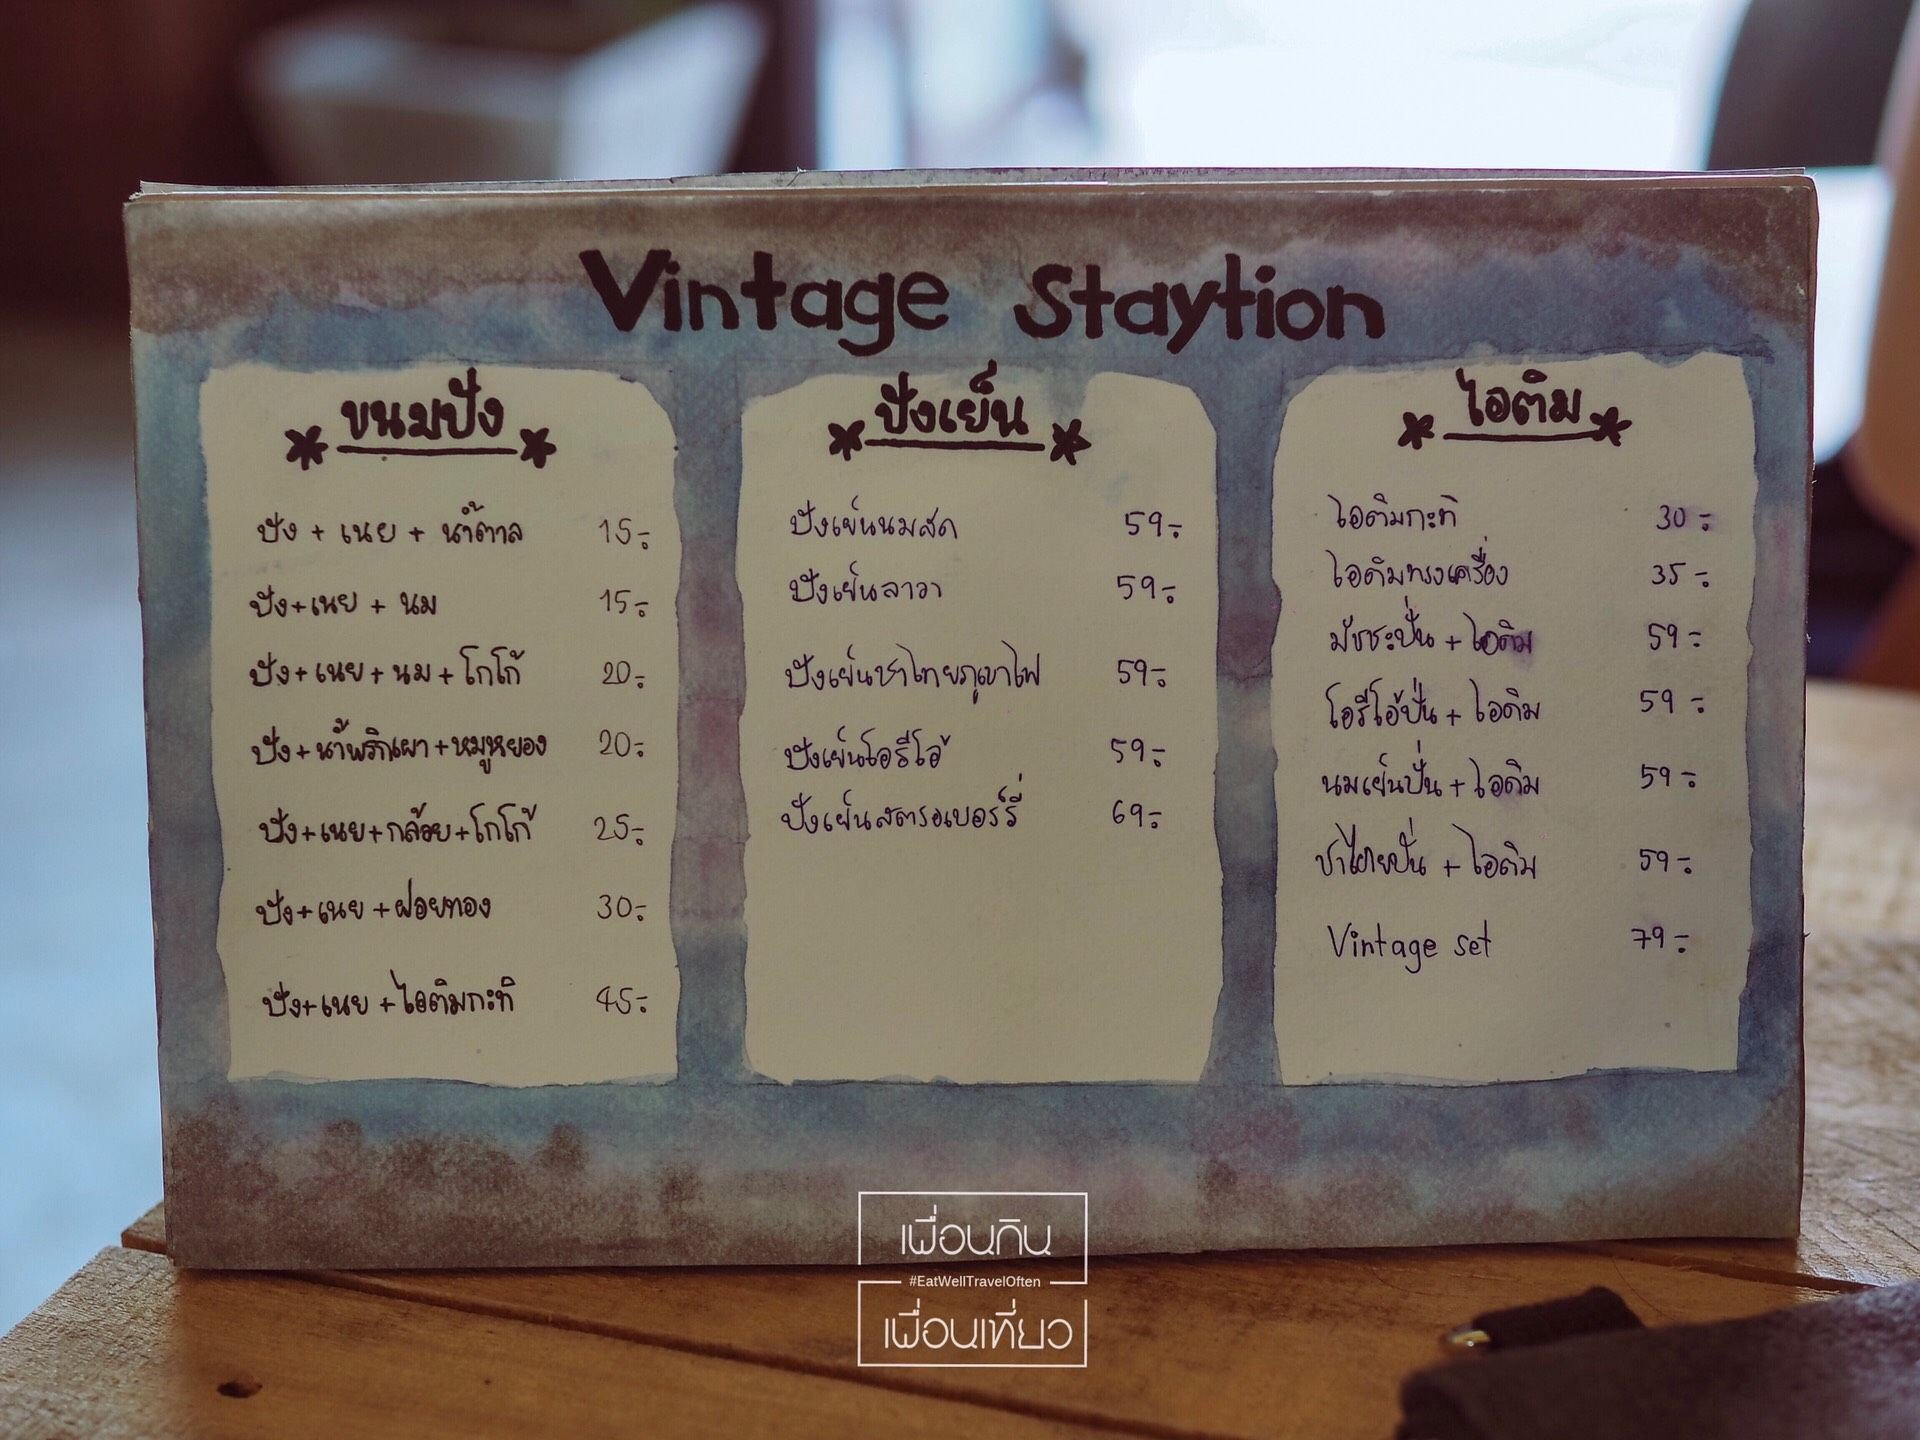 Vintage Staytion
ขนมปัง
ปัง + เนย + น้ำตาล 15.-
ปัง+เนย + นม 15.-
ปัง+เนย+นม+โกโก้ 20.-
ปัง+น้ำพริกเผา+หมูหยอง 20.-
ปัง+เนย+กล้วย+โกโก้ 25.-
ปัง+เนย+ฝอยทอง 30.-
ปัง+เนย+ไอติมกะทิ 45.-
ปังเย็น
ปังเย็นนมสด 59.-
ปังเย็นลาวา 59.-
ปังเย็นชาไทยภูเขาไฟ 59.-
ปังเย็นโอรีโอ้ 59.-
ปังเย็นสตรอเบอร์รี่ 69.-
ไอติม
ไอติมกะทิ 30.-
ไอติมทรงเครื่อง 35.-
มัชชะปั่น + ไอติม 59.-
โอรีโอ้ปั่น + ไอติม 59.-
นมเย็นปั่น + ไอติม 59.-
ชาไทยปั่น + ไอติม 59.-
Vintage set 79.-
เพื่อนกิน
#EatWellTravelOften
เพื่อนเที่ยว